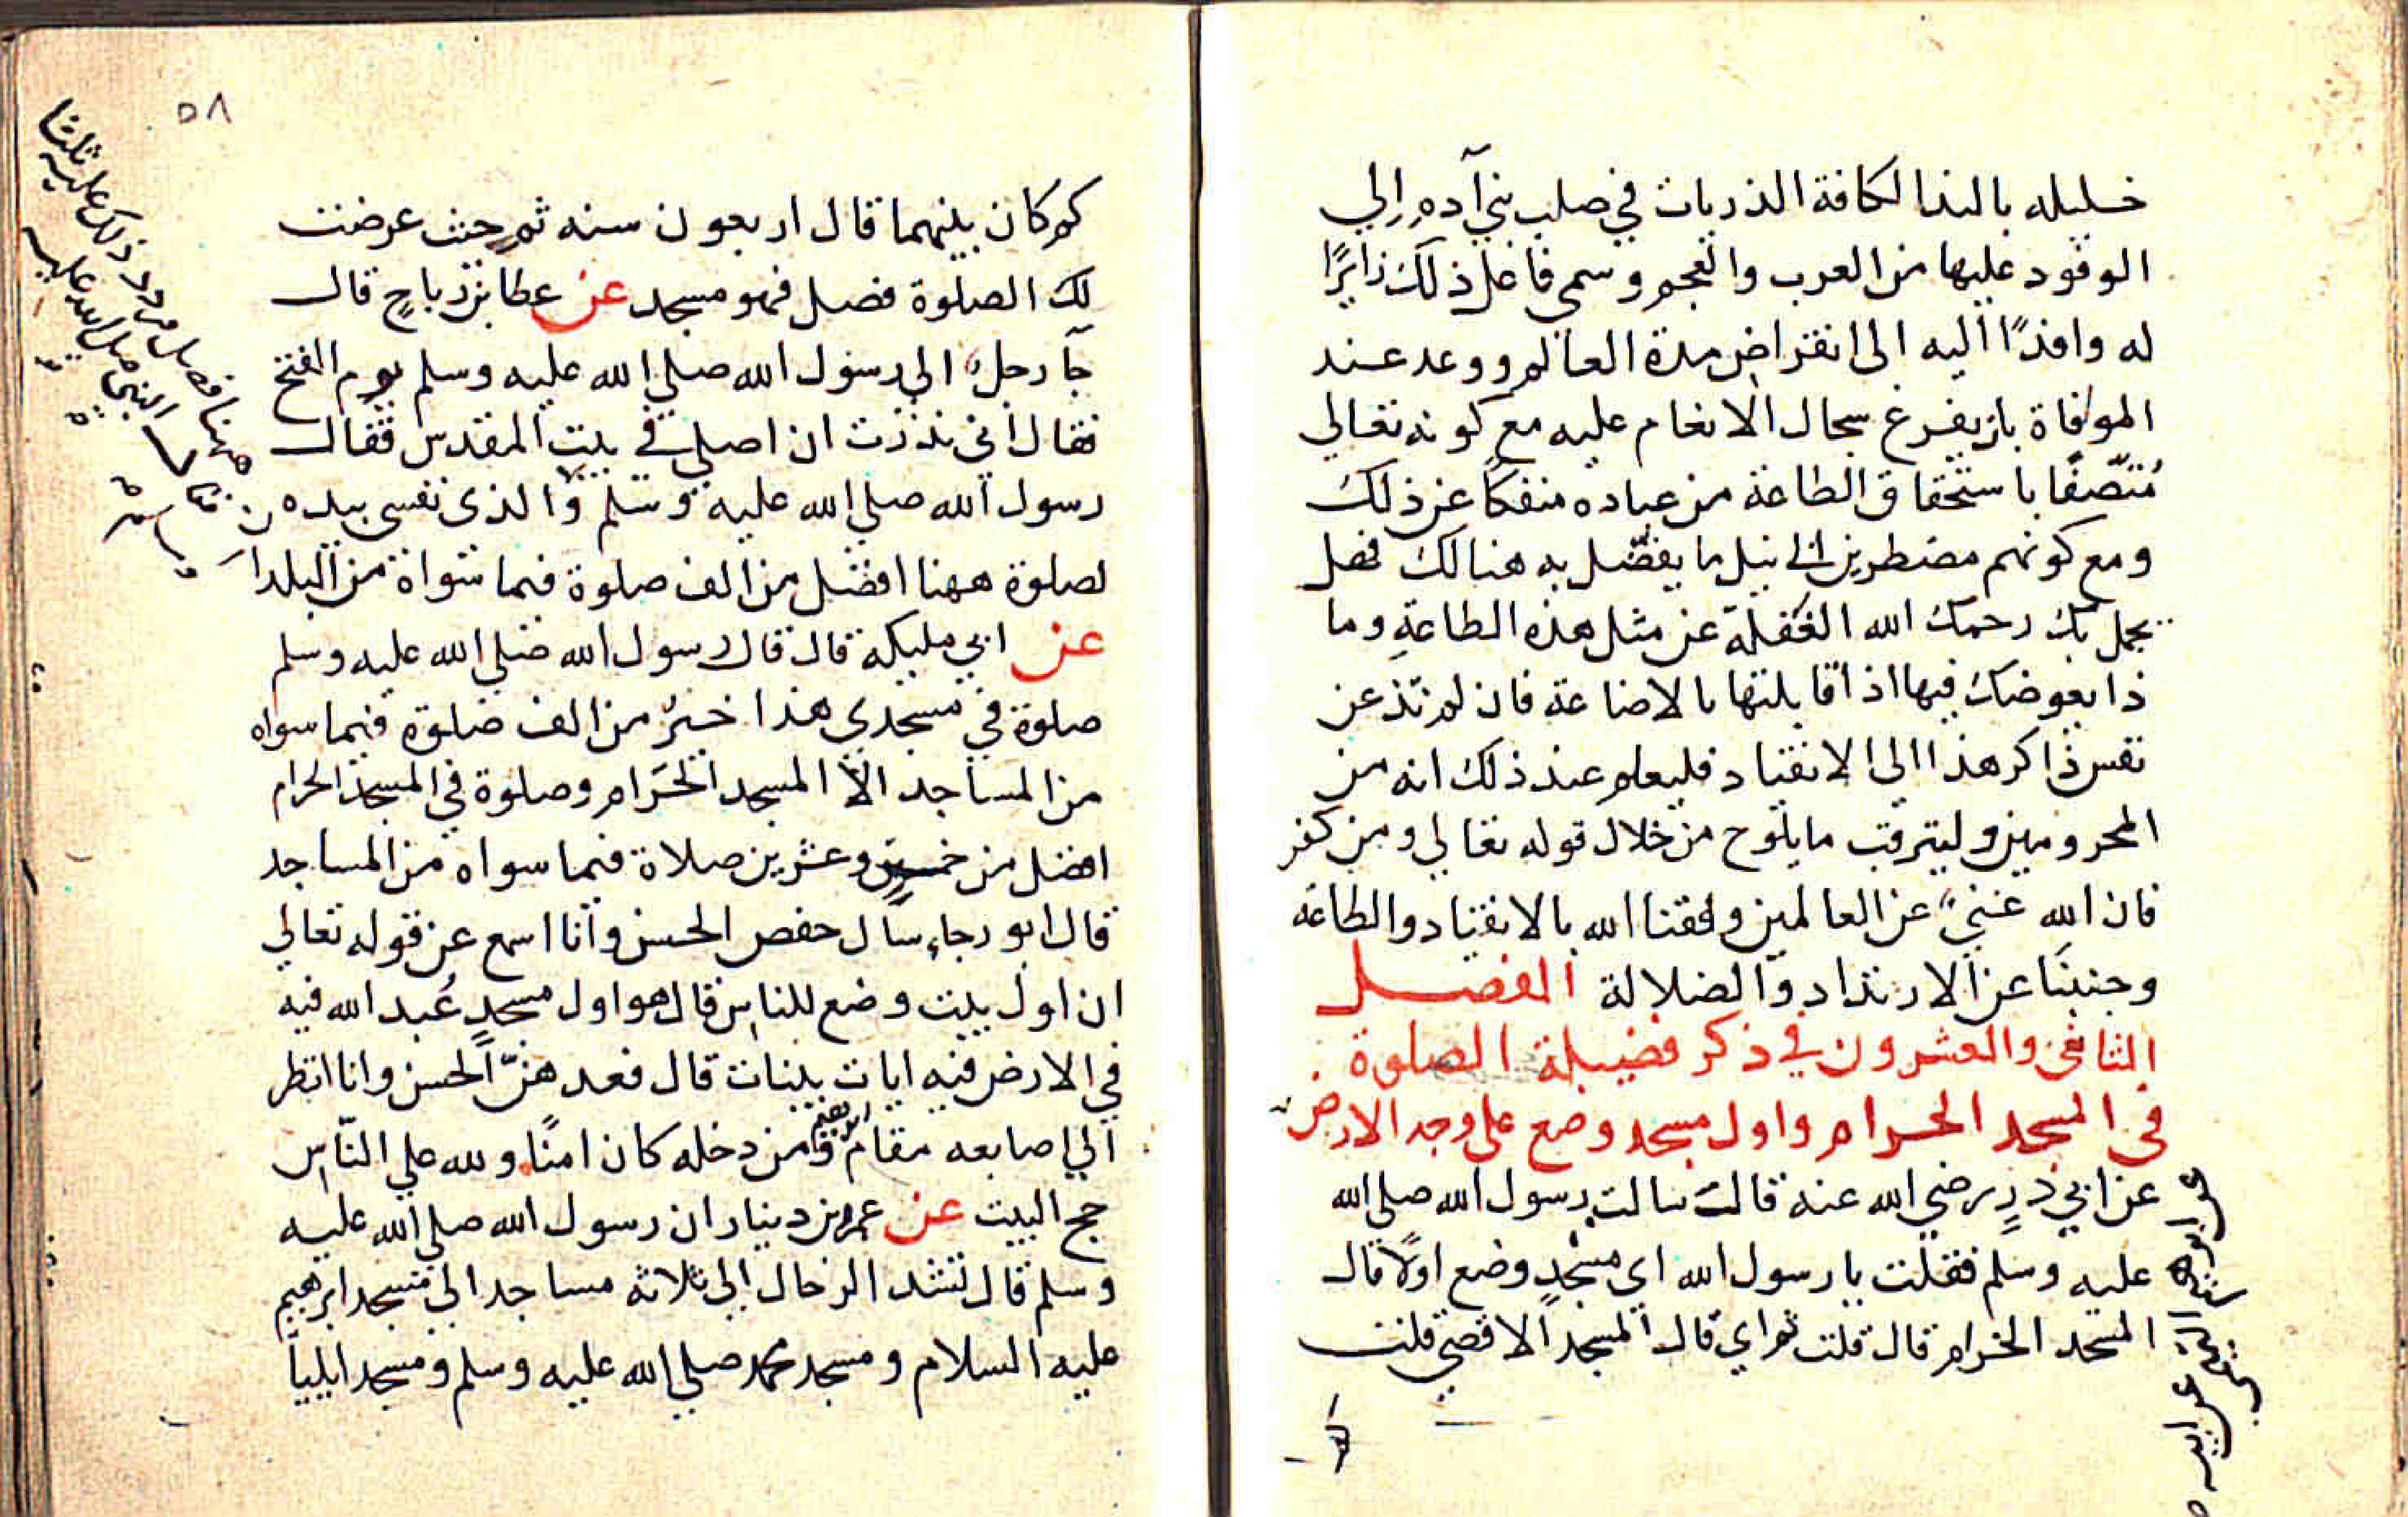 خليله بالندا لكافة الذريات في صلب بني آدم إلي
الوفود عليها من العرب والعجم وسمى فاعل ذلك زايرًا
له وافدًا اليه الى انقراض مدة العالم ووعد عند
الموافاة بان يفرغ سجال الانعام عليه مع كونه تعالي
مُتّصفًا باستحقاق الطاعة من عباده منفكا عن ذلك
ومع كونهم مضطرين الى نيل ما يفضّل به هنالك فهل
يجمل بك رحمك الله الغفلة عن مثل هذه الطاعة وما
ذا يعوضك فيها اذا قابلتها بالاضاعة فان لم تذعن
نفس ذاكر هذا الى الانقياد فليعلم عند ذلك انه من
المحرومين وليترقب ما يلوح من خلال قوله تعالي ومن كفر
فان الله غنيٌ عن العالمين وفقنا الله بالانقياد والطاعة
وجنبنا عن الارتداد والضلالة الفصل
الثاني والعشرون في ذكر فضيلة الصلوة
في المسجد الحرام واول مسجد وضع على وجه الارض
عن ابي ذرٍ رضي الله عنه قال سالت رسول الله صلي الله
عليه وسلم فقلت يا رسول الله اي مسجدٍ وضع اولًا قال
المسجد الحرام قال قلت ثم اي قال المسجد الاقصي قلت
كم
٥٨
كم كان بينهما قال اربعون سنه ثم حيث عرضت
لك الصلوة فصل فهو مسجد عن عطا بن رباحٍ قال
جآ رجلٌ الي رسول الله صلي الله عليه وسلم يوم الفتح
فقال اني نذرت ان اصلي في بيت المقدس فقال
رسول الله صلي الله عليه وسلم والذى نفسي بيده
لصلوة ههنا افضل من الف صلوة فيما سواة من البلدا
عن ابي مليكة قال قال رسول الله صلي الله عليه وسلم
صلوة في مسجدي هذا خيرٌ من الف صلوة فيما سواه
من المساجد الا المسجد الحَرَام وصلوة في المسجد الحرام
افضل من خمس وعشرين صلاة فيما سواه من المساجد
قال ابو رجاء سال حفص الحسن وانا اسمع عن قوله تعالي
ان اول بيت وضع للناس قال هو اول مسجدٍ عُبد الله فيه
في الارض فيه ايات بينات قال فعدهنّ الحسن وانا انظر
الي اصابعه مقام ابرهيم ومن دخله كان امنًا ولله علي النّاس
حج البيت عن عمرو بن دينار ان رسول الله صلي الله عليه
وسلم قال تشد الرحال الي ثلاثة مساجد الي مسجد ابرهيم
عليه السلام ومسجد محمد صلي الله عليه وسلم ومسجد ايلياَ
ههنا فصل فردد ذلك عليه ثلثا
فقال النبي صلى الله عليه
وسلم